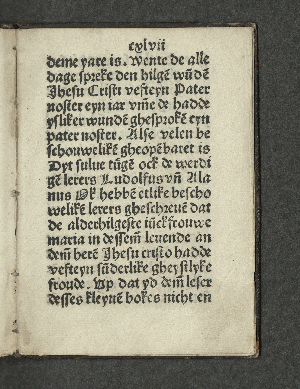 cxlvii
deme yare is. Wente de alle
dage spreke den hilgē wūdē
Jhesu Cristi vefteyn Pater
noster eyn iar vm̄e de hadde
ysliker wundē ghesprokē eyn
pater noster. Alse velen be
schouwelikē gheopēbaret is
Dyt sulue tūgē ock de werdi
gē lerers Ludolfus vn̄ Ala
nus Ok hebbē etlike bescho
welikē lerers ghescreuē dat
de alderhilgeste iūckfrouwe
maria in dessem̄ leuende an
dem̄ herē Jhesu cristo hadde
vefteyn sūderlike gheystlyke
froude. Up dat yd dem̄ leser
desses kleynē bokes nicht en